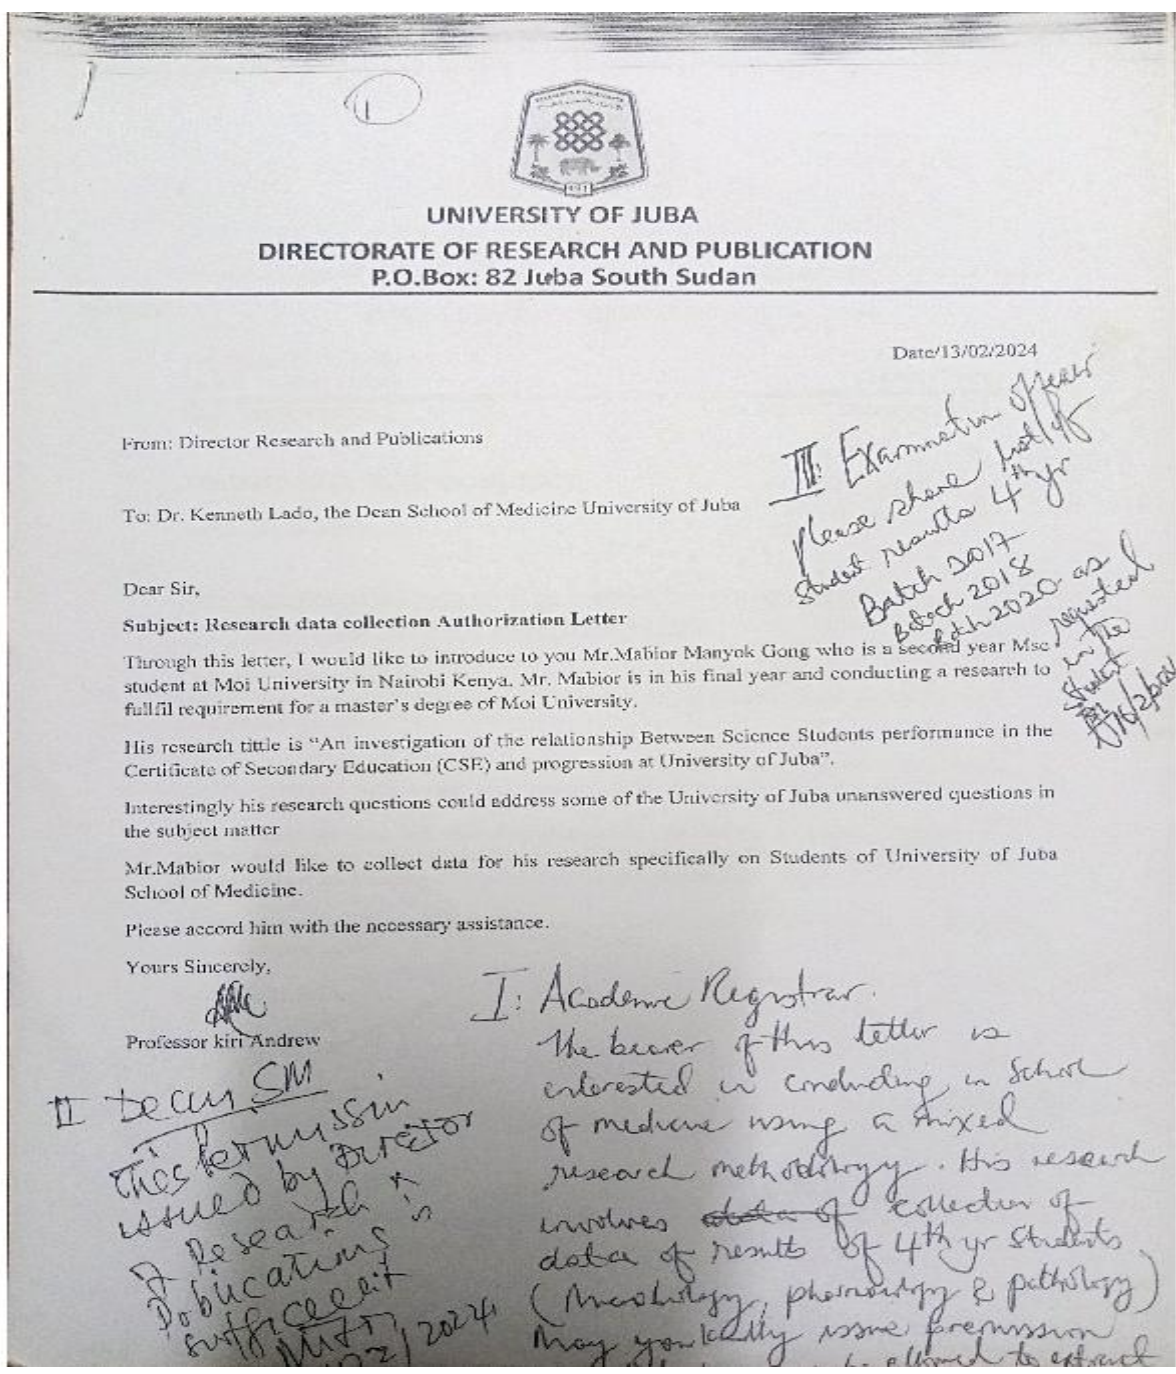 1
UNIVERSITY OF JUBA
DIRECTORATE OF RESEARCH AND PUBLICATION
P.O.Box: 82 Juba South Sudan
Date/13/02/2024
From: Director Research and Publications
To: Dr. Kenneth Lado, the Dean School of Medicine University of Juba
Dear Sir,
Subject: Research data collection Authorization Letter
Through this letter, I would like to introduce to you Mr.Mabior Manyok Gong who is a second year Msc
student at Moi University in Nairobi Kenya. Mr. Mabior is in his final year and conducting a research to
fullfil requirement for a master's degree of Moi University.
His research tittle is "An investigation of the relationship Between Science Students performance in the
Certificate of Secondary Education (CSE) and progression at University of Juba".
Interestingly his research questions could address some of the University of Juba unanswered questions in
the subject matter
Mr.Mabior would like to collect data for his research specifically on Students of University of Juba
School of Medicine.
Please accord him with the necessary assistance.
Yours Sincerely,
Professor kiri Andrew
III: Examination officer
please share list of
student results 4th yr
Batch 2017
Batch 2018
Batch 2020 as
requested
in the
I: Academic Registrar.
The bearer of this letter is
interested in conducting in School
of medicine using a mixed
research methodology. His research
involves collection of
data of results of 4th yr students
(Microbiology, pharmacology & pathology)
May you kindly issue premission
be allowed to extract
II Dean, SM
This permission
issued by Director
of Research &
Publications is
sufficient